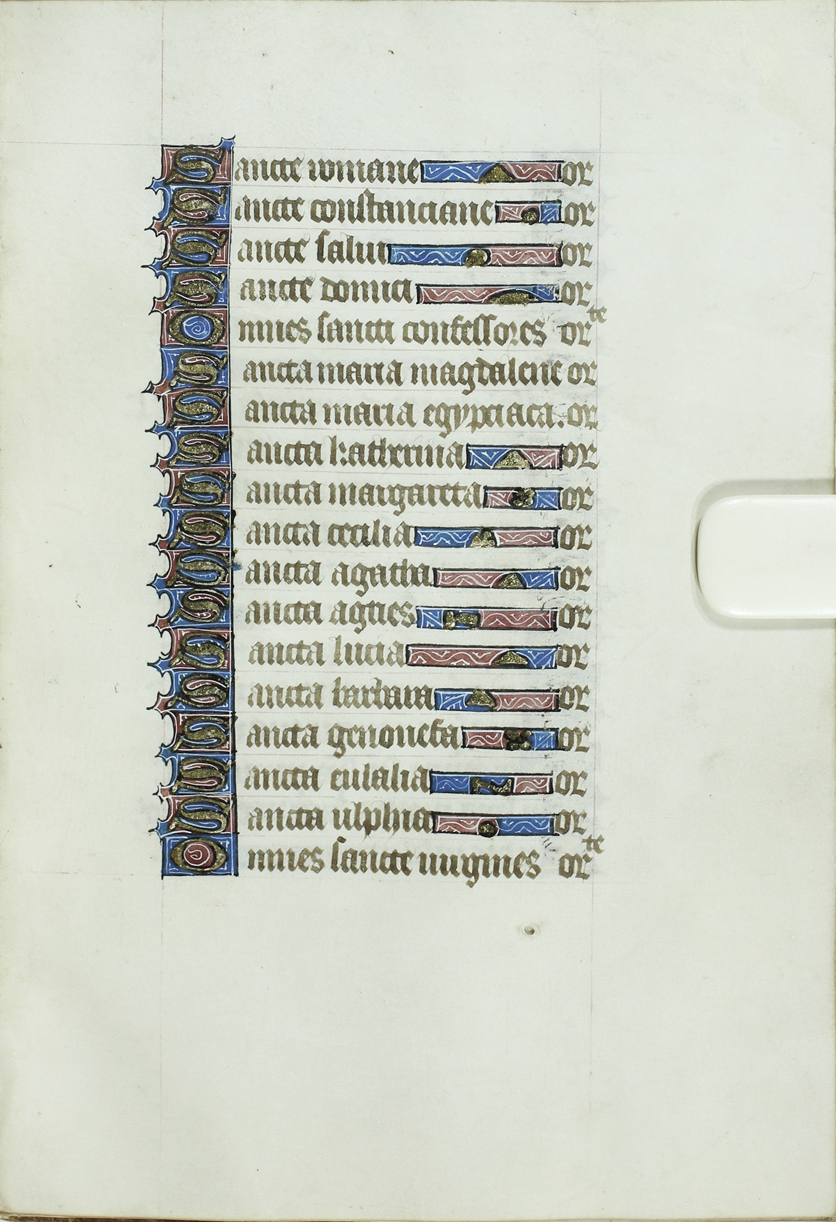 Sancte romane or
Sancte constanciane or
Sancte salui or
Sancte domici or
Omnes sancti confessores orte
Sancta maria magdalene or
Sancta maria egypciaca. or
Sancta katherina or
Sancta margareta or
Sancta cecilia or
Sancta agatha or
Sancta agnes or
Sancta lucia or
Sancta barbara or
Sancta genouefa or
Sancta eulalia or
Sancta ulphia or
Omnes sancte uirgines orte